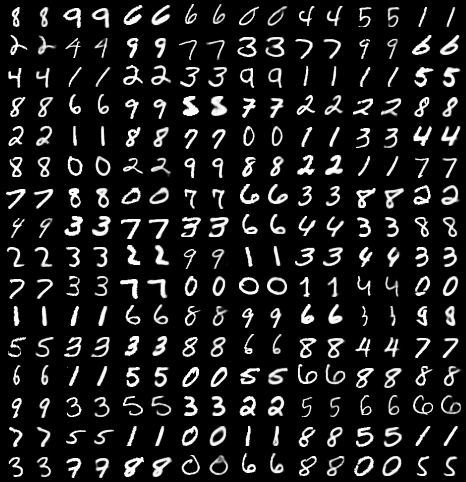 8 8 9 9 6 6 6 6 0 0 4 4 5 5 1 1
2 2 4 4 9 9 7 7 3 3 7 7 9 9 6 6
4 4 1 1 2 2 3 3 9 9 1 1 1 1 5 5
8 8 6 6 9 9 5 5 7 7 2 2 2 2 8 8
2 2 1 1 8 8 7 7 0 0 1 1 3 3 4 4
8 8 0 0 2 2 9 9 8 8 2 2 1 1 7 7
7 7 8 8 0 0 7 7 6 6 3 3 8 8 2 2
4 9 3 3 7 7 3 3 6 6 4 4 3 3 8 8
2 2 3 3 2 2 9 9 1 1 3 3 4 4 3 3
7 7 3 3 7 7 0 0 0 0 1 1 4 4 0 0
1 1 1 1 6 6 8 8 9 9 6 6 3 3 9 8
5 5 3 3 3 3 8 8 6 6 8 8 4 4 7 7
6 6 1 1 5 5 0 0 5 5 6 6 8 8 8 8
9 9 3 3 5 5 3 3 2 2 5 5 6 6 6 6
7 7 5 5 1 1 0 0 1 1 8 8 5 5 1 1
3 3 7 9 8 8 0 0 6 6 8 8 0 0 5 5